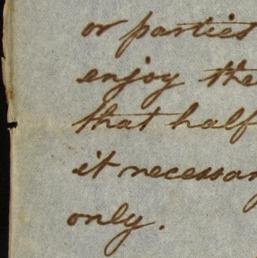 or parties
enjoy the
that half
it necessary
only.